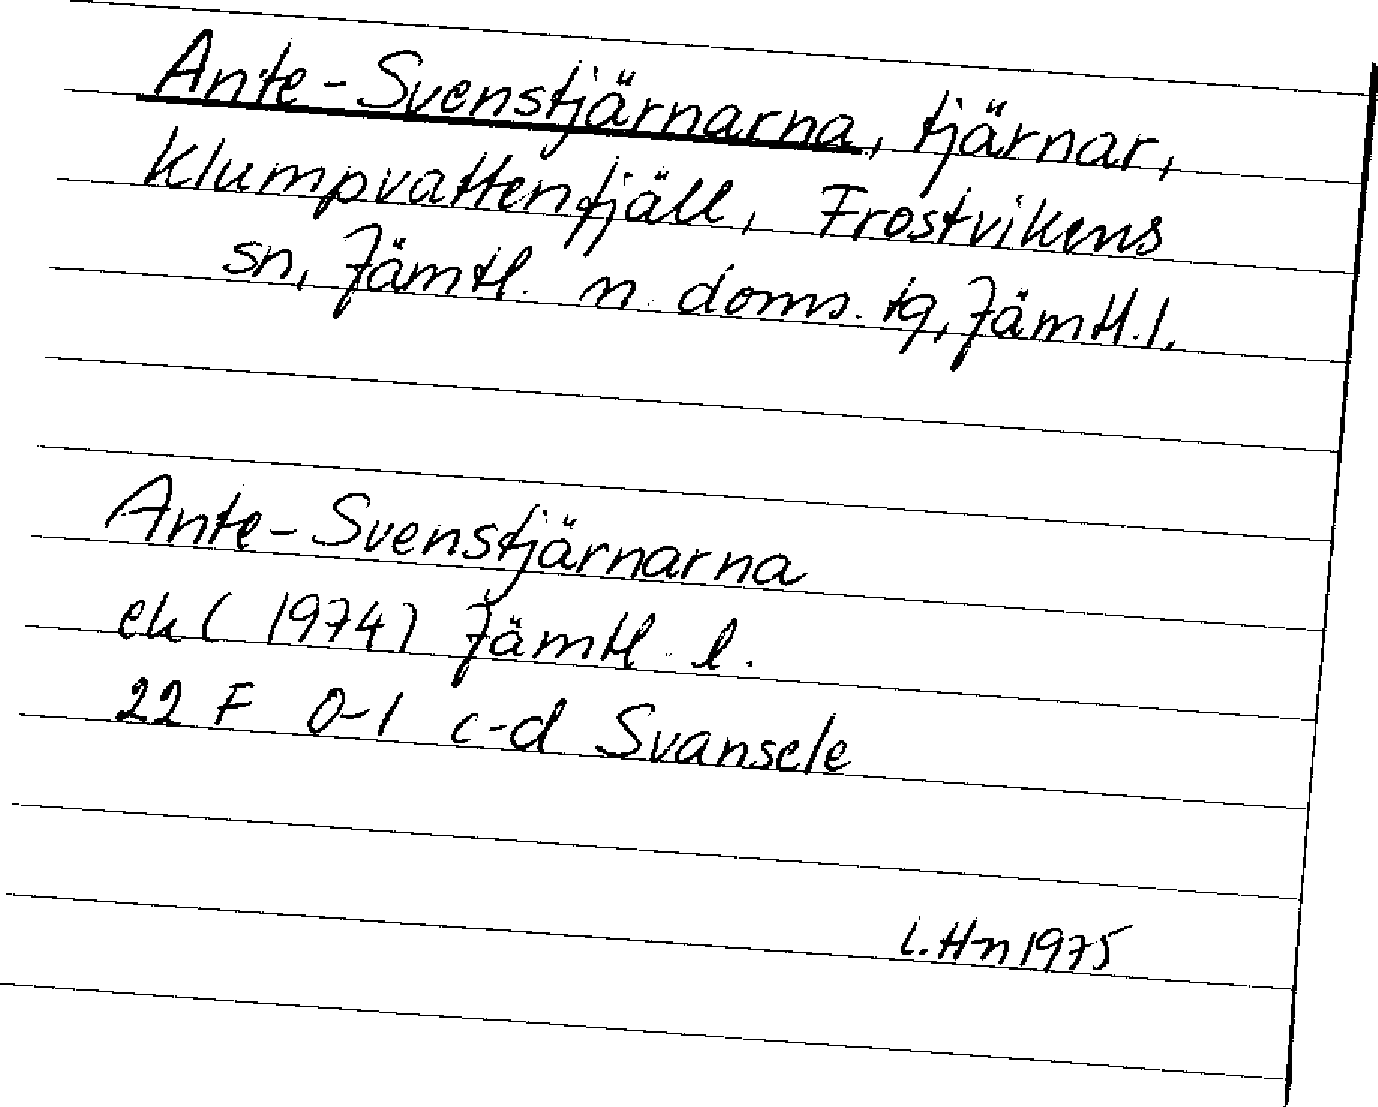 Ante-Svenstjärnarna, tjärnar,
Klumpvattenfjäll, Frostvikens
sn, Jämtl. n. doms. tg, Jämtl. l.
Ante-Svenstjärnarna
ek ( 1974) Jämtl. l.
22 F 0-1 c-d Svansele
L.Hn 1975